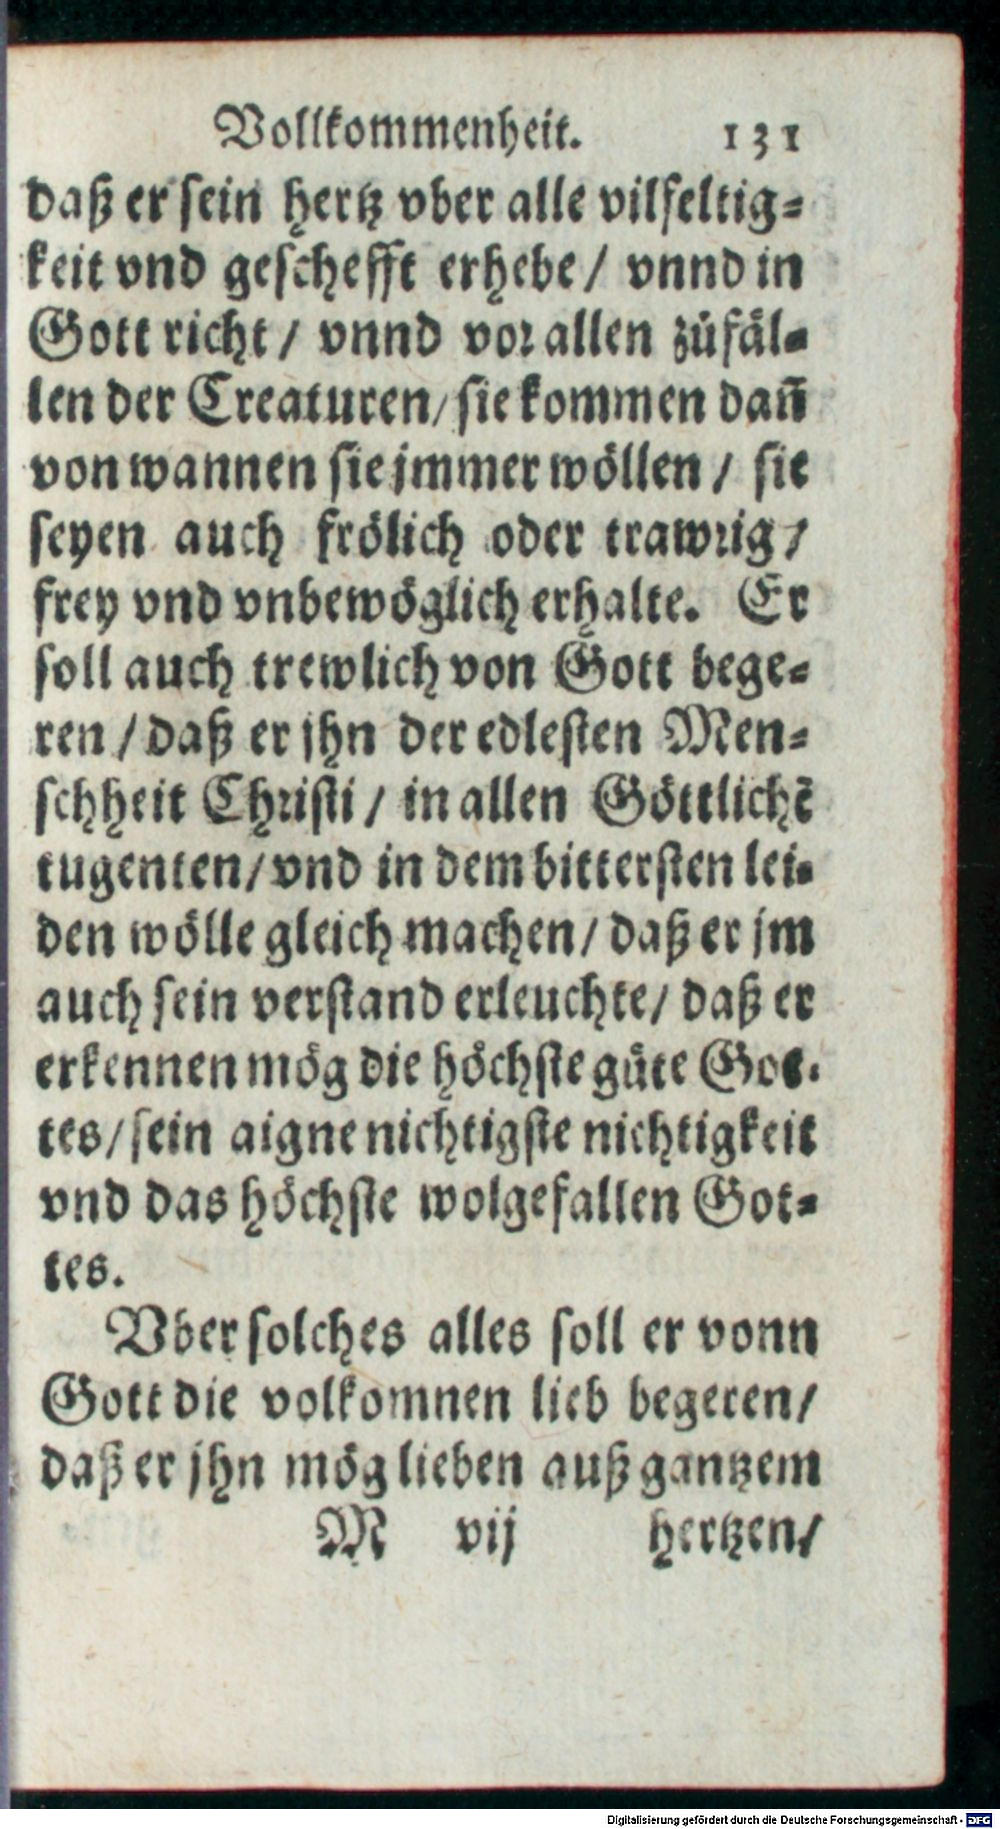 Vollkommenheit. 131
daß er sein hertz vber alle vilfeltig-
keit vnd geschefft erhebe / vnnd in
Gott richt / vnnd vor allen zůfäl-
len der Creaturen / sie kommen dañ
von wannen sie jmmer wöllen / sie
seyen auch frölich oder trawrig /
frey vnd vnbewöglich erhalte. Er
soll auch trewlich von Gott bege-
ren / daß er jhn der edlesten Men-
schheit Christi / in allen Göttlichē
tugenten / vnd in dem bittersten lei-
den wölle gleich machen / daß er jm
auch sein verstand erleuchte / daß er
erkennen mög die höchste güte Got-
tes / sein aigne nichtigste nichtigkeit
vnd das höchste wolgefallen Got-
tes.
Vber solches alles soll er vonn
Gott die volkomnen lieb begeren /
daß er jhn mög lieben auß gantzem
M vij hertzen /
Digitalisierung gefördert durch die Deutsche Forschungsgemeinschaft - DFG